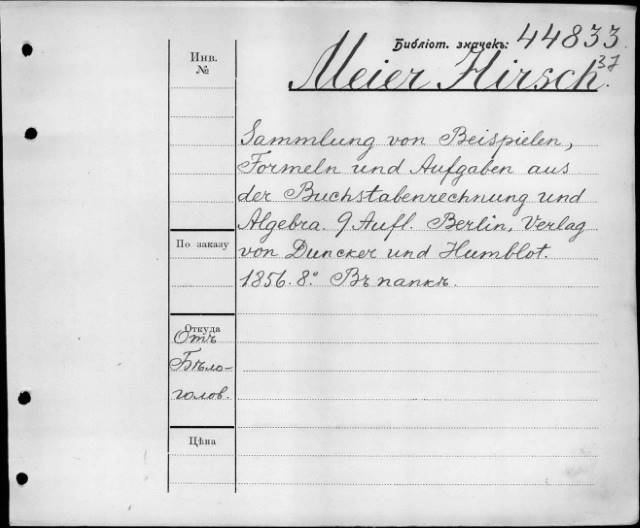 Библіот. значекъ: 44833
37
Meier Hirsch.
Инв.
№
Sammlung von Beispielen,
Formeln und Aufgaben aus
der Buchstabenrechnung und
Algebra. 9 Aufl. Berlin, Verlag
По заказу
von Duncker und Humblot.
1856. 8.° Въ папкѣ.
Откуда
Отъ
Бѣло-
голов.
Цѣна